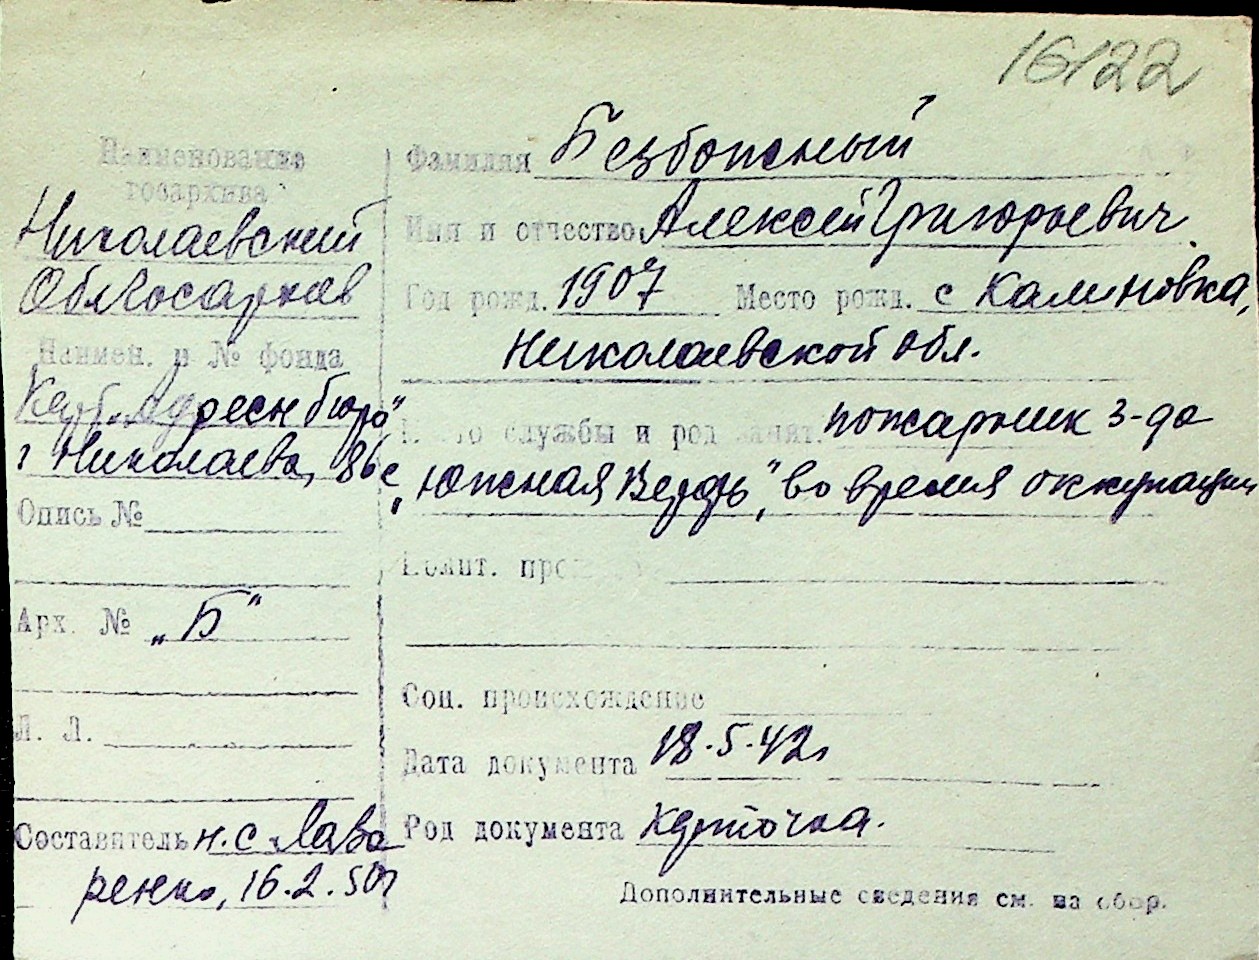 16122
Наименование
госархива
Николаевский
Облгосархив
Наимен. и № фонда
Адресн бюро"
г Николаева, 86с
Опись №
Арх. № „Б"
Л. Л.
Составитель н.с Лавы
ренко, 16.2.50г
Фамилия Безбожный
Имя и отчество Алексей Григорьевич
Год рожд. 1907 Место рожд. с Калиновка,
Николаевской обл.
Место службы и род занят. пожарник з-да
„Южная Верфь", во время оккупации
Полит.
Соц. происхождение
Дата документа 18.5.42г
Род документа карточка.
Дополнительные сведения см. на обор.